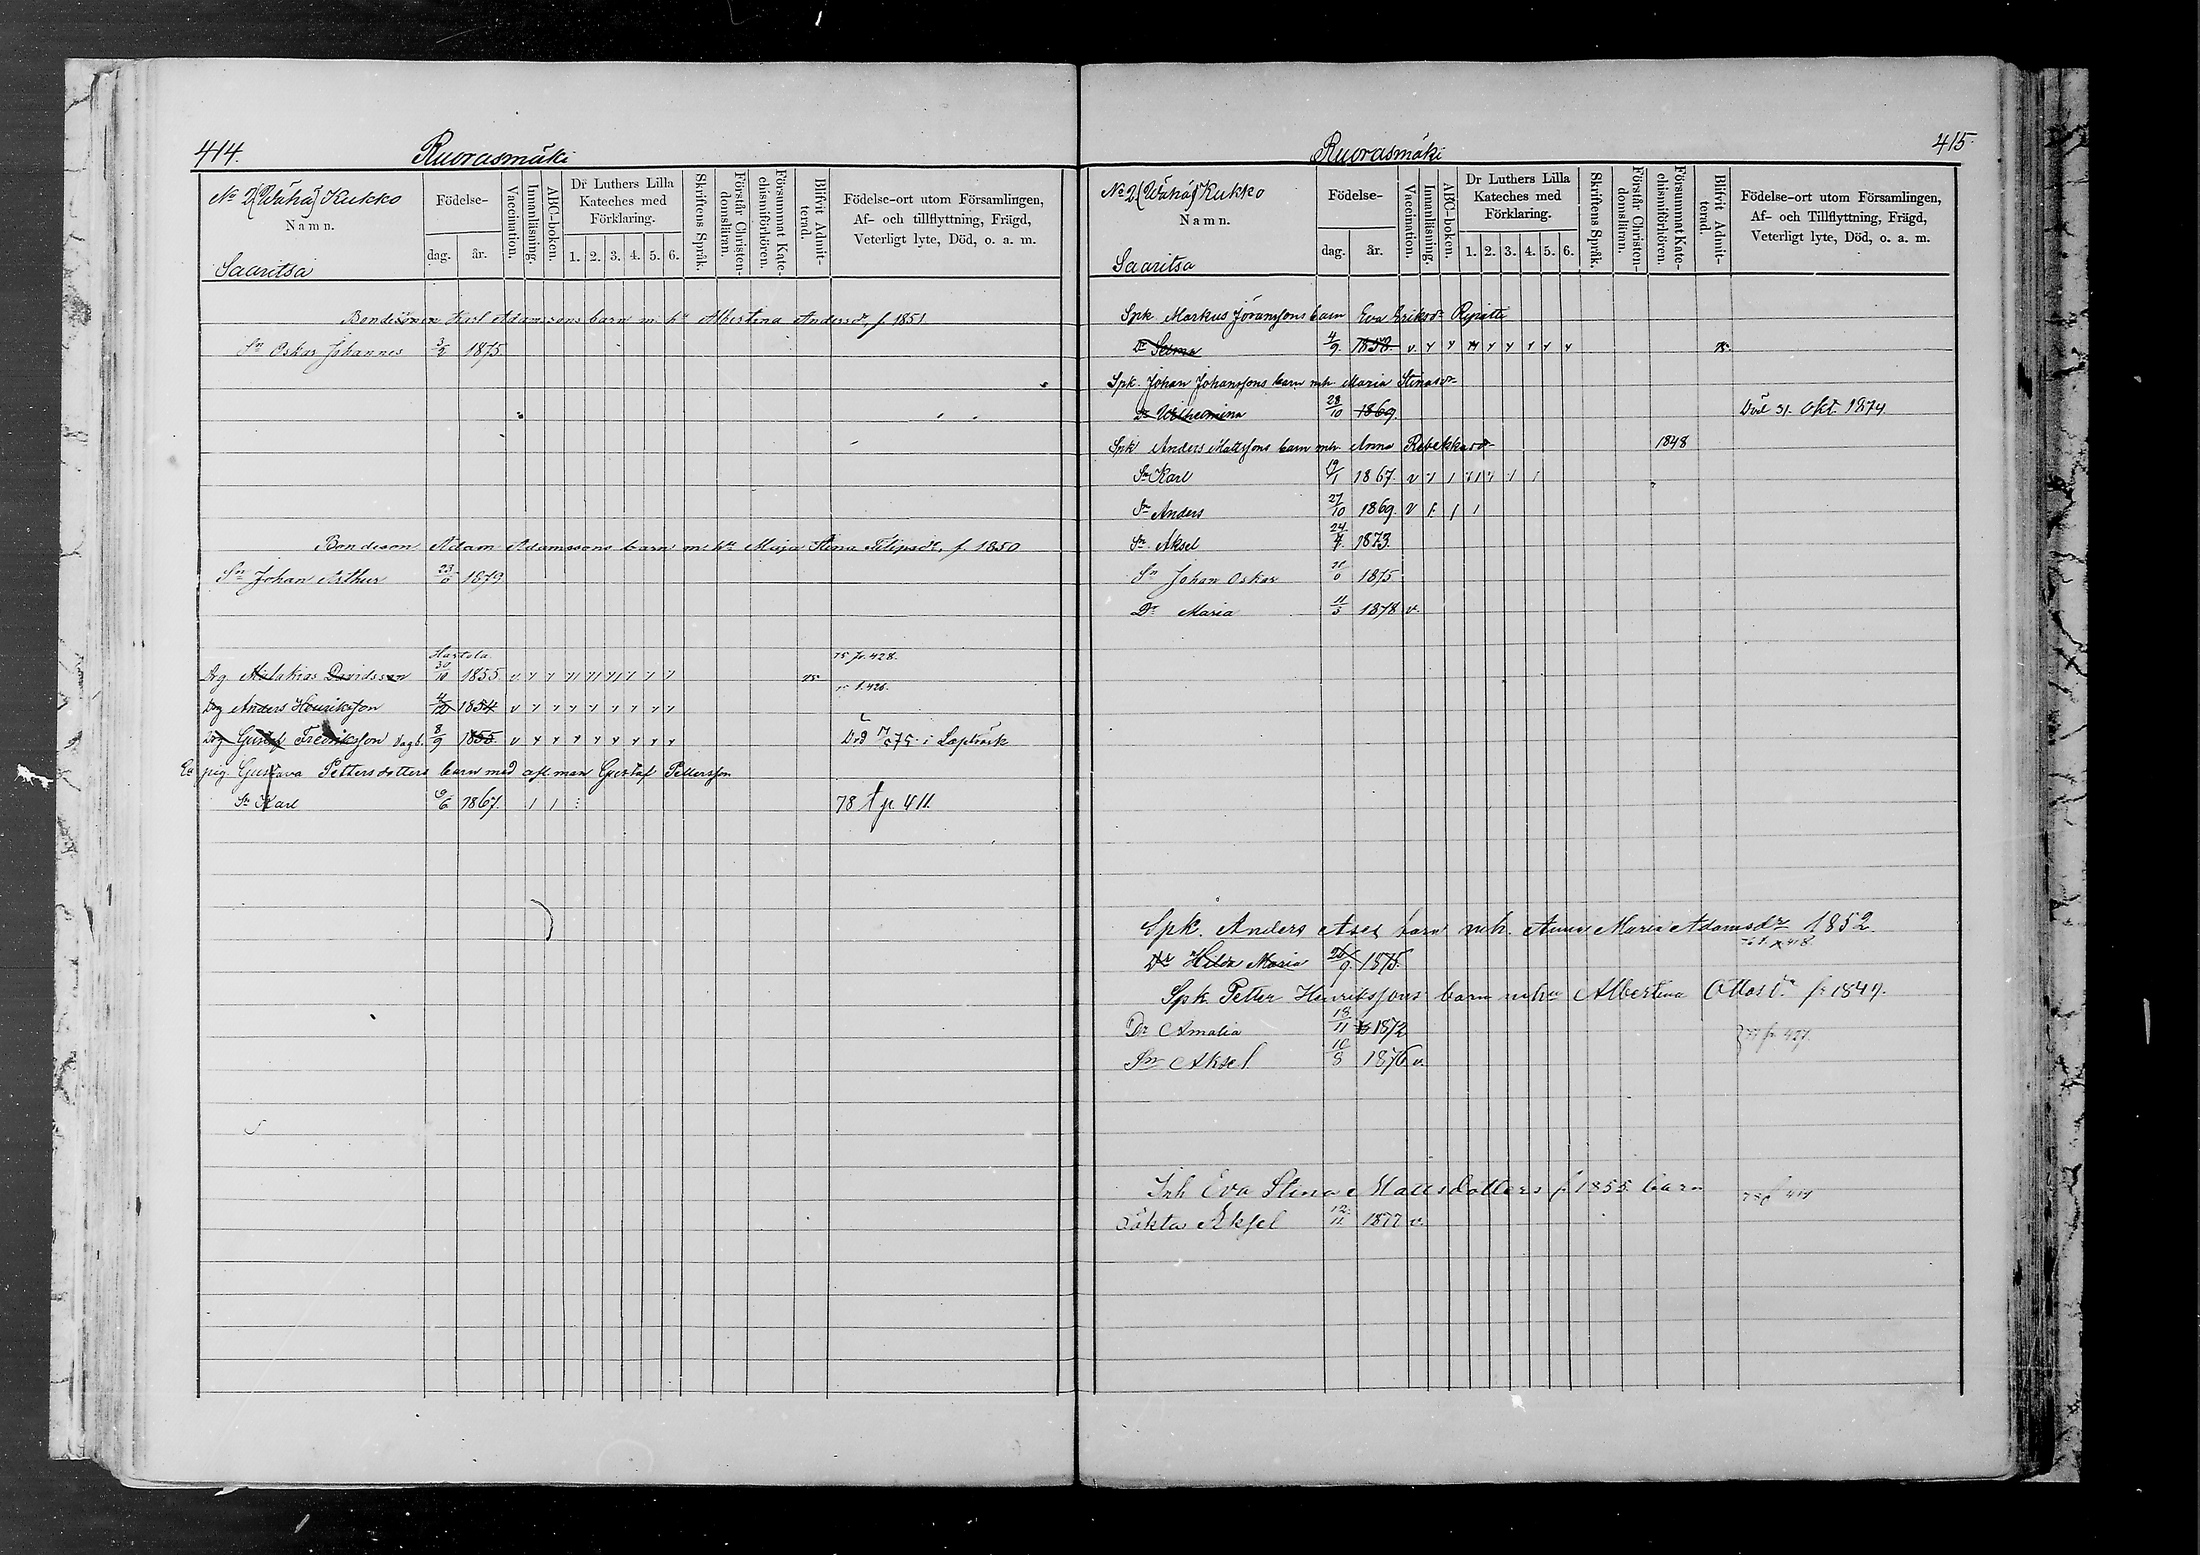 414.
Ruorasmäki
No 2 (Wähä) Kukko
Namn.
Saaritsa
Födelse-
dag. år.
Vaccination.
Innanläsning.
ABC-boken.
Dr Luthers Lilla Kateches med Förklaring.
1. 2. 3. 4. 5. 6.
Skriftens Språk.
Förstår Christendomsläran.
Försummat Katechismiförhören.
Blifvit Admitterad.
Födelse-ort utom Församlingen,
Af- och tillflyttning, Frägd,
Veterligt lyte, Död, o. a. m.
Bondesonen Karl Adamssons barn m. hu Albertina Andersdr, f. 1851
Sn Oskar Johannes 3/2 1875
Bondeson Adam Adamssons barn m. hu Maja Stina Filipsdr, f. 1850
Sn Johan Arthur 1879
Hartola
Drg Malakias Davidsson 30/10 1855 v 75 fr. 428.
Drg Anders Henriksson 1854 v
Drg Gustaf Fredriksson 8/9 1855. v
i Läpträsk
pig. Gustava Pettersdotters barn med afl. man Gustaf Pettersson
Sn Karl 1867. 78 t p 411.
415.
Ruorasmäki
No 2 (Wähä) Kukko
Namn.
Saaritsa
Födelse-
dag. år.
Vaccination.
Innanläsning.
ABC-boken.
Dr Luthers Lilla Kateches med Förklaring.
1. 2. 3. 4. 5. 6.
Skriftens Språk.
Förstår Christendomsläran.
Försummat Katechismiförhören.
Blifvit Admitterad.
Födelse-ort utom Församlingen,
Af- och Tillflyttning, Frägd,
Veterligt lyte, Död, o. a. m.
Spk Markus Göranssons barn Eva Eriksdr Ripatti
Dr Selma 4/9. 1858. v.
Spk. Johan Johanssons barn mh. Maria Stinasdr
Dr Wilhelmina 28/10 1869 Död 31. Okt. 1874
Spk Anders Mattssons barn mh. Anna Rebekkasdr 1848
Sn Karl 19/1 1867. v
Sn Anders 27/10 1869. v
Sn Aksel 1873.
Sn Johan Oskar 1875
Dr Maria 11/3 1878 v.
Spk. Anders barn mh. Anna Maria Adamsdr 1852.
Dr Hilda Maria 1875.
Spk. Petter Henrikssons barn mhu Albertina Ottosdr f. 1847.
Dr Amalia 18/11 1872
Sn Aksel 1876 v.
Inh Eva Stina Mattsdotters f. 1855 barn
Oäkta Aksel 12/11 1877 v.